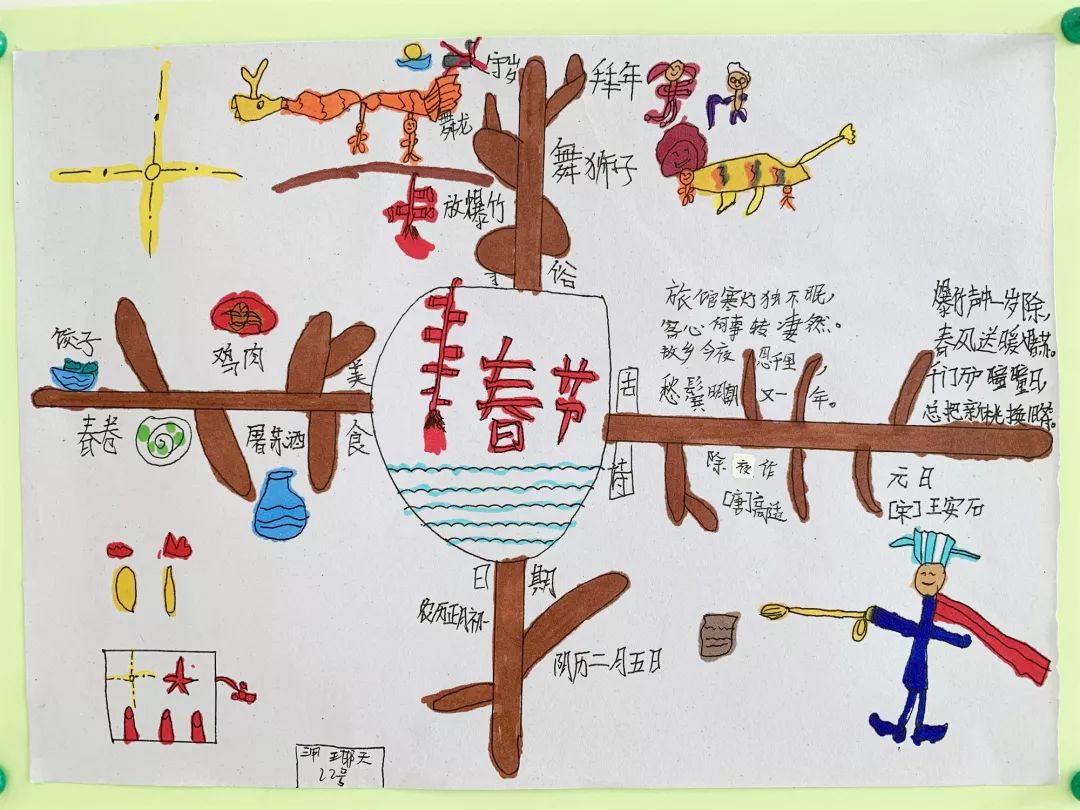 守岁
拜年
舞龙
舞狮子
放爆竹
俗
春节
饺子
鸡肉
美
食
春卷
屠苏酒
古
诗
旅馆寒灯独不眠，
客心何事转凄然。
故乡今夜思千里，
愁鬓明朝又一年。
除夜作
[唐]高适
爆竹声中一岁除，
春风送暖
千门万户曈曈日，
总把新桃换旧
元日
[宋]王安石
日期
农历正月初一
阴历二月五日
22号